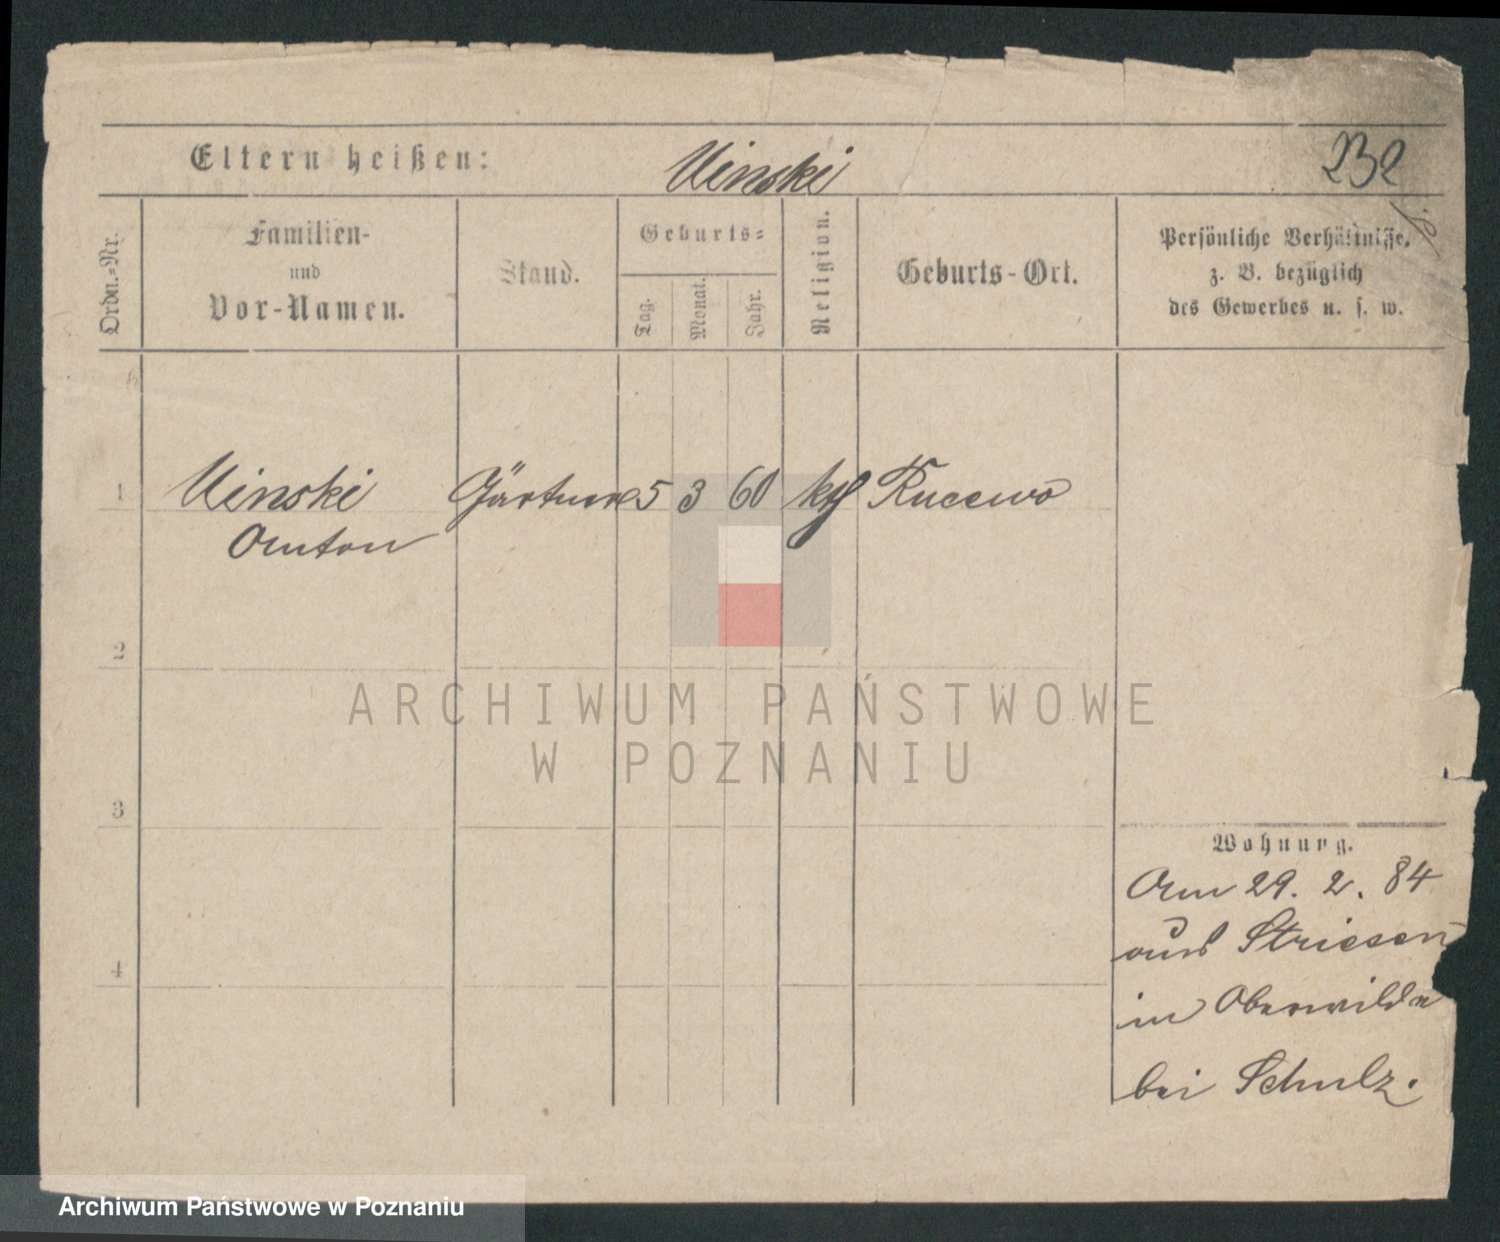 Eltern heißen: Uinski 232
Ordn.=Nr.
Familien-
und
Vor-Namen.
Stand.
Geburts=
Tag.
Monat.
Jahr.
Religion.
Geburts-Ort.
Persönliche Verhältnisse.
z. B. bezüglich
des Gewerbes u. s. w.
1 Uinski Gärtner 5 3 60 kth Rucewo
Anton
2
3
4
Wohnung.
Am 29. 2. 84
aus Striesen
in Oberwilda
bei Schulz.
ARCHIWUM PAŃSTWOWE
W POZNANIU
Archiwum Państwowe w Poznaniu